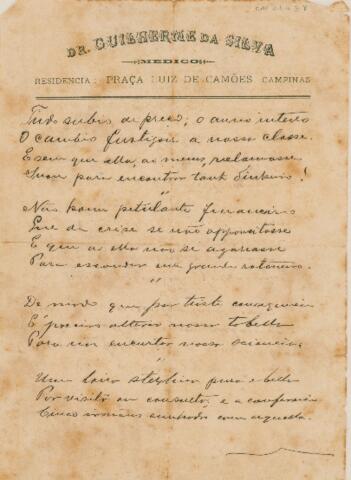 DR. GUILHERME DA SILVA
MEDICO
RESIDENCIA: PRAÇA LUIZ DE CAMÕES CAMPINAS
Tudo subiu de preço; o anno inteiro
O cambio fustigou a nossa classe.
E sem que ella, ao menos, reclamasse
para encontrar tant dinheiro!
"
Não houve petulante financeiro
Que da crise se não approveitasse
E que a ella não se agarrasse
Para esconder um grande
"
De modo que por triste
É preciso alterar nossa tabella
Para nos encurtar nossa
"
Um loiro sterlino puro e bello
Por visita ou consulta; e a conferencia
Cinco com aquella.